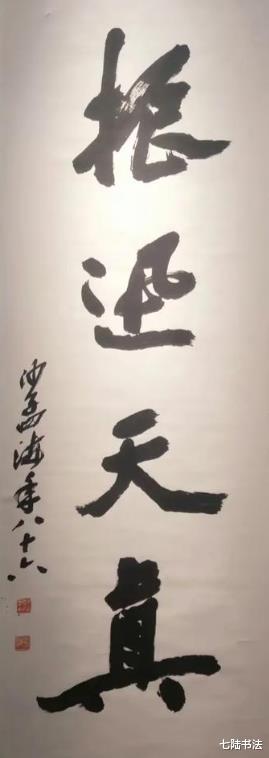 振迅天真
沙孟海年八十六
七陆书法